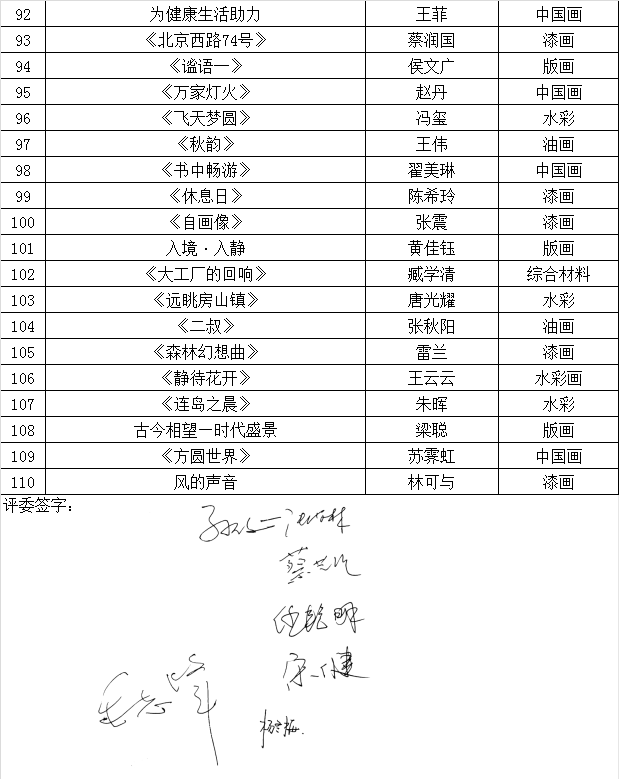 92 为健康生活助力 王菲 中国画
93 《北京西路74号》 蔡润国 漆画
94 《谧语一》 侯文广 版画
95 《万家灯火》 赵丹 中国画
96 《飞天梦圆》 冯玺 水彩
97 《秋韵》 王伟 油画
98 《书中畅游》 翟美琳 中国画
99 《休息日》 陈希玲 漆画
100 《自画像》 张震 漆画
101 入境·入静 黄佳钰 版画
102 《大工厂的回响》 臧学清 综合材料
103 《远眺房山镇》 唐光耀 水彩
104 《二叔》 张秋阳 油画
105 《森林幻想曲》 雷兰 漆画
106 《静待花开》 王云云 水彩画
107 《连岛之晨》 朱晖 水彩
108 古今相望一时代盛景 梁聪 版画
109 《方圆世界》 苏霁虹 中国画
110 风的声音 林可与 漆画
评委签字：